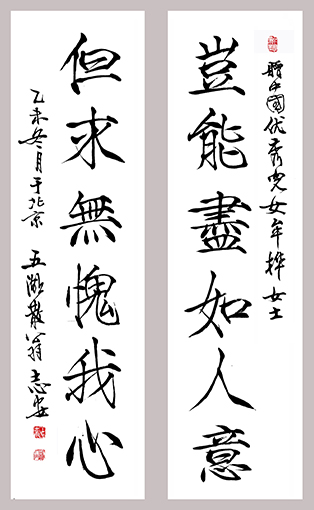 贈中國优秀儿女牟桦女士
豈能盡如人意
但求無愧我心
乙未冬月于北京 五湖散翁志安